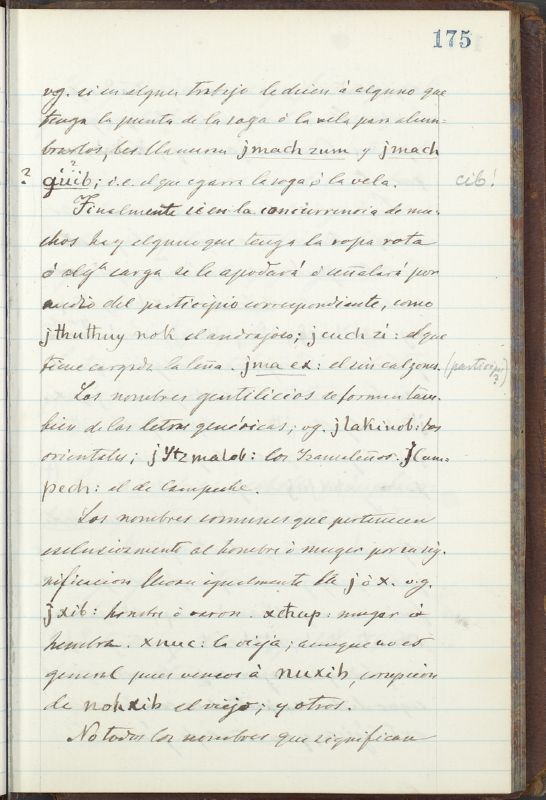 175
vg. si en algun trabajo le dicen á alguno que
tenga la punta de la soga ó la vela para alum-
brarlos, les llaman jmach zum y jmach
? güib; i.e. el que agarra la soga ó la vela. cib!
?
Finalmente si en la concurrencia de mu-
chos hay alguno que tenga la ropa rota
ó algª carga se le apodará ó señalará por
medio del participio correspondiente, como
jthuthuy nok el andrajoso; jcuch zi: el que
tiene cargada la leña. jma ex: el sin calzones. (particip?)
Los nombres gentilicios se forman tam-
bien de las letras genéricas; vg. jlakinob: los
orientales; jYtzmalob: los Izamaleños. jCam-
pech: el de Campeche.
Los nombres comunes que pertenecen
esclusivamente al hombre ó muger por su sig-
nificacion llevan igualmente la j ó x. vg.
jxib: hombre ó varon. xchup: muger ó
hembra. xnuc: la vieja; aunque no es
general pues vemos á nuxib, corrupcion
de nohxib el viejo; y otros.
No todos los nombres que significan